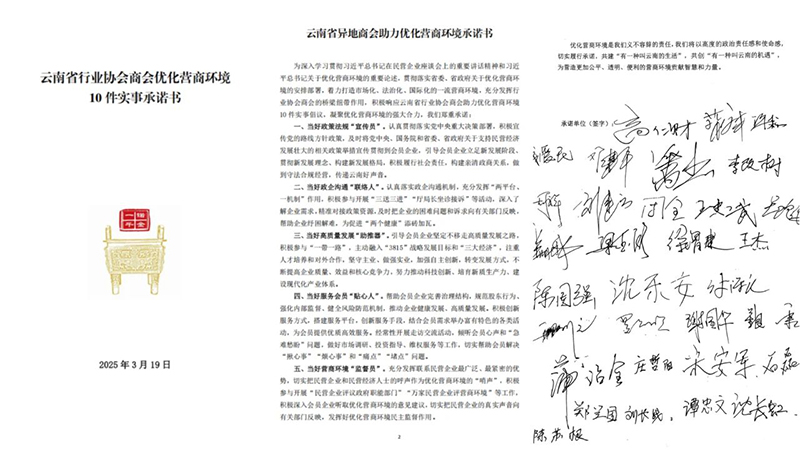 云南省行业协会商会优化营商环境
10 件实事承诺书
2025 年 3 月 19 日
云南省异地商会助力优化营商环境承诺书
为深入学习贯彻习近平总书记在民营企业座谈会上的重要讲话精神和习
近平总书记关于优化营商环境的重要论述，贯彻落实省委、省政府关于优化营商环境
的安排部署，着力打造市场化、法治化、国际化的一流营商环境，充分发挥行
业协会商会的桥梁纽带作用，积极响应云南省行业协会商会助力优化营商环境
10 件实事倡议，凝聚优化营商环境的强大合力，我们郑重承诺：
一、当好政策法规“宣传员”。认真贯彻落实党中央重大决策部署，积极宣
传党的路线方针政策，及时将党中央、国务院和省委、省政府关于支持民营经济
发展壮大的相关政策举措宣传贯彻到会员企业，引导会员企业立足新发展阶段、
贯彻新发展理念、构建新发展格局，积极履行社会责任，构建亲清政商关系，做
到守法合规经营，传递云南好声音。
二、当好政企沟通“联络人”。认真落实政企沟通机制，充分发挥“两平台、
一机制”作用，积极参与开展“三送三进”“厅局长坐诊接诉”等活动，深入了
解企业需求，精准对接政策资源，及时把企业的困难问题和诉求向有关部门反映，
帮助企业纾困解难，为促进“两个健康”添砖加瓦。
三、当好高质量发展“助推器”。引导会员企业坚定不移走高质量发展之路，
积极参与“一带一路”，主动融入“3815”战略发展目标和“三大经济”，注重
人才培养和对外合作，坚守主业、做强实业，加强自主创新、转变发展方式，不
断提高企业质量、效益和核心竞争力，努力推动科技创新、培育新质生产力，建
设现代化产业体系。
四、当好服务会员“贴心人”。帮助会员企业完善治理结构，规范股东行为、
强化内部监督、健全风险防范机制，推动企业健康发展、高质量发展，积极创新
服务方式，搭建服务平台，创新服务手段，结合会员需求举办富有特色的各类活
动，为会员提供优质高效服务。经常性开展走访交流活动，倾听会员心声和“急
难愁盼”问题，做好市场调研、投资指导、维权服务等工作，切实帮助会员解决
“揪心事”“烦心事”和“痛点”“堵点”问题。
五、当好营商环境“监督员”。充分发挥联系民营企业最广泛、最紧密的优
势，切实把民营企业和民营经济人士的呼声作为优化营商环境的“哨声”，积极
参与开展“民营企业评议政府职能部门”“万家民营企业评营商环境”等工作，
积极深入会员企业听取优化营商环境的意见建议，切实把民营企业的真实声音向
有关部门反映，发挥好优化营商环境民主监督作用。
2
优化营商环境是我们义不容辞的责任，我们将以高度的政治责任感和使命感，
切实履行承诺，共建“有一种叫云南的生活”，共创“有一种叫云南的机遇”，
为营造更加公平、透明、便利的营商环境贡献智慧和力量。
承诺单位（签字）：
王杰
陈国强 沈东安
庄哲阳 宋安军 石磊
谭忠文 沈长虹